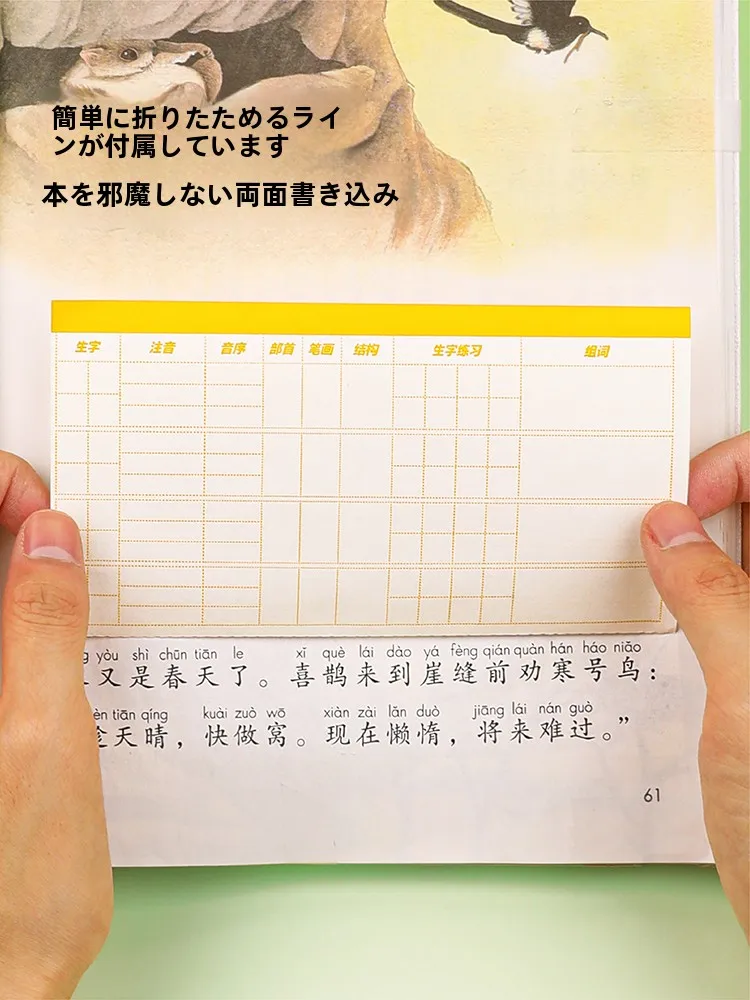 簡単に折りたためるライ
ンが付属しています
本を邪魔しない両面書き込み
生字 注音 音序 部首 笔画 结构 生字练习 组词
yòu shì chūn tiān le xǐ què lái dào yá fèng qián quàn hán háo niǎo
又是春天了。喜鹊来到崖缝前劝寒号鸟：
tiān qíng kuài zuò wō xiàn zài lǎn duò jiāng lái nán guò
天晴，快做窝。现在懒惰，将来难过。”
61